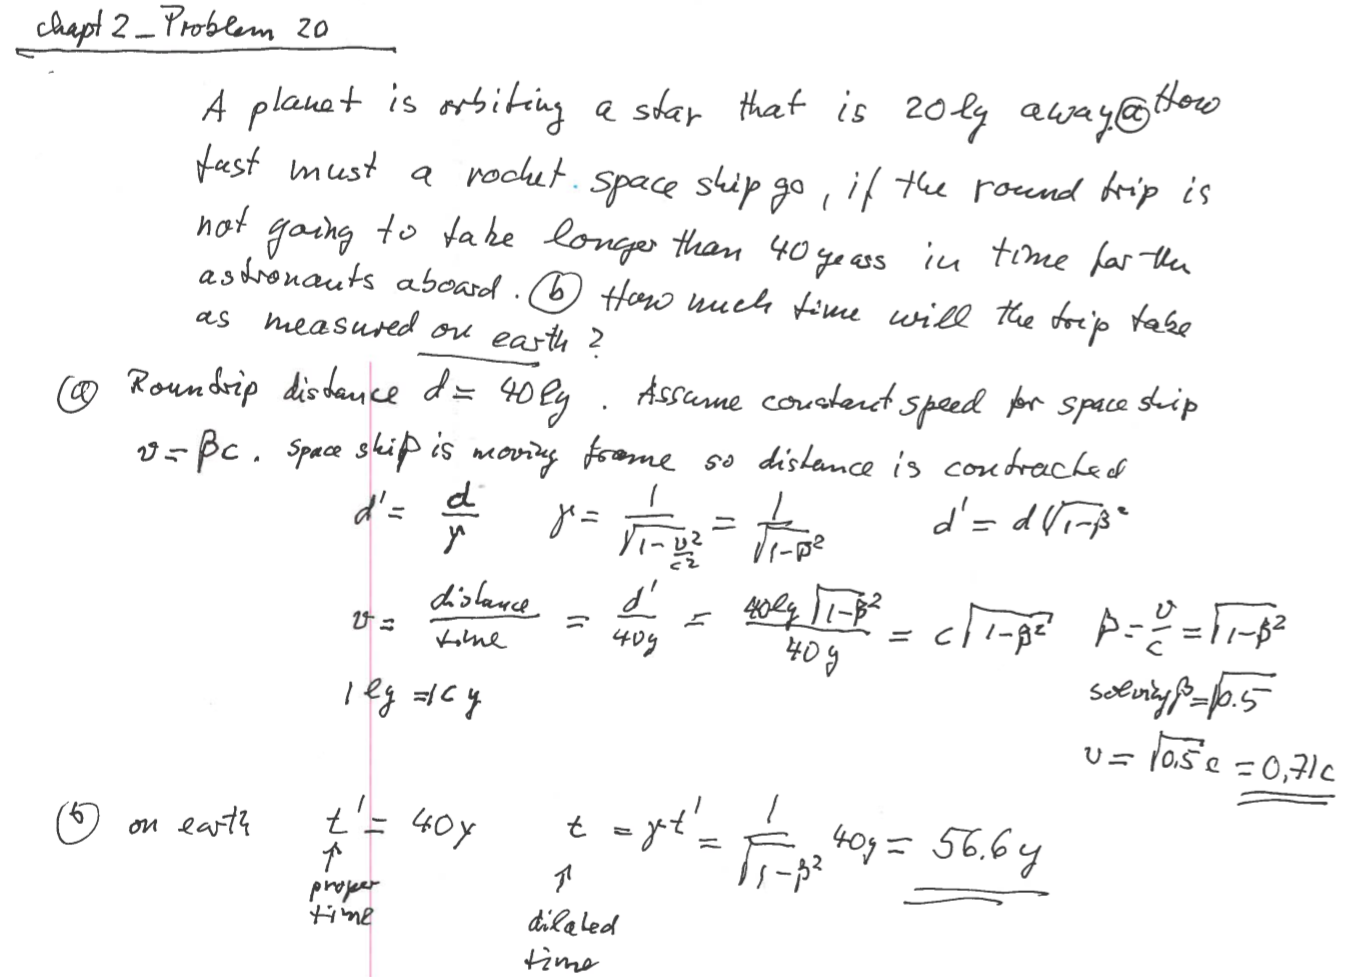 Chapt 2 _ Problem 20
A planet is orbiting a star that is 20 ly away. (a) How
fast must a rocket space ship go, if the round trip is
not going to take longer than 40 years in time for the
astronauts aboard. (b) How much time will the trip take
as measured on earth?
(a) Roundtrip distance d = 40 ly . Assume constant speed for space ship
v = βc . Space ship is moving frame so distance is contracted
d' = d/γ γ = 1/√(1-v²/c²) = 1/√(1-β²) d' = d√(1-β²)
v = distance/time = d'/40y = 40ly √(1-β²)/40y = c√(1-β²) β = v/c = √(1-β²)
1 ly = 1c y solving β = √0.5
v = √0.5 c = 0,71c
(b) on earth t' = 40y t = γt' = 1/√(1-β²) 40y = 56.6 y
↑ proper time ↑ dilated time